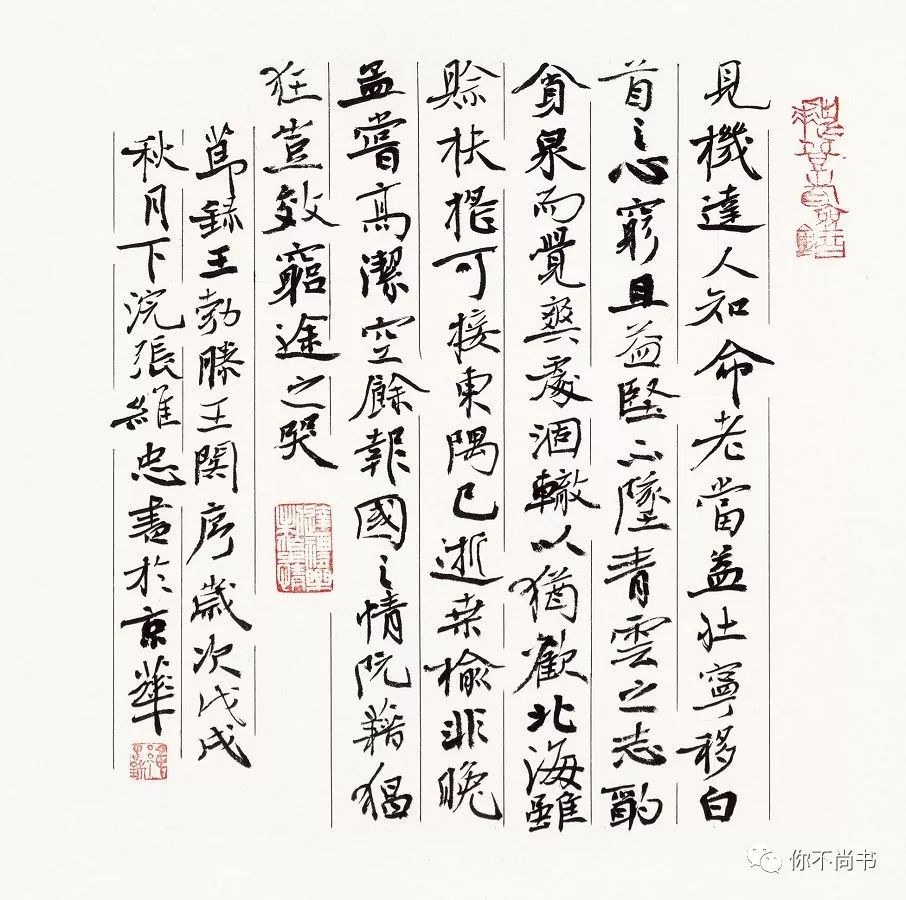 見機達人知命老當益壯寧移白
首之心窮且益堅不墜青雲之志酌
貪泉而覺爽處涸轍以猶歡北海雖
賒扶搖可接東隅已逝桑榆非晚
孟嘗高潔空餘報國之情阮籍猖
狂豈效窮途之哭
節錄王勃滕王閣序歲次戊戌
秋月下浣張維忠書於京華
你不尚书